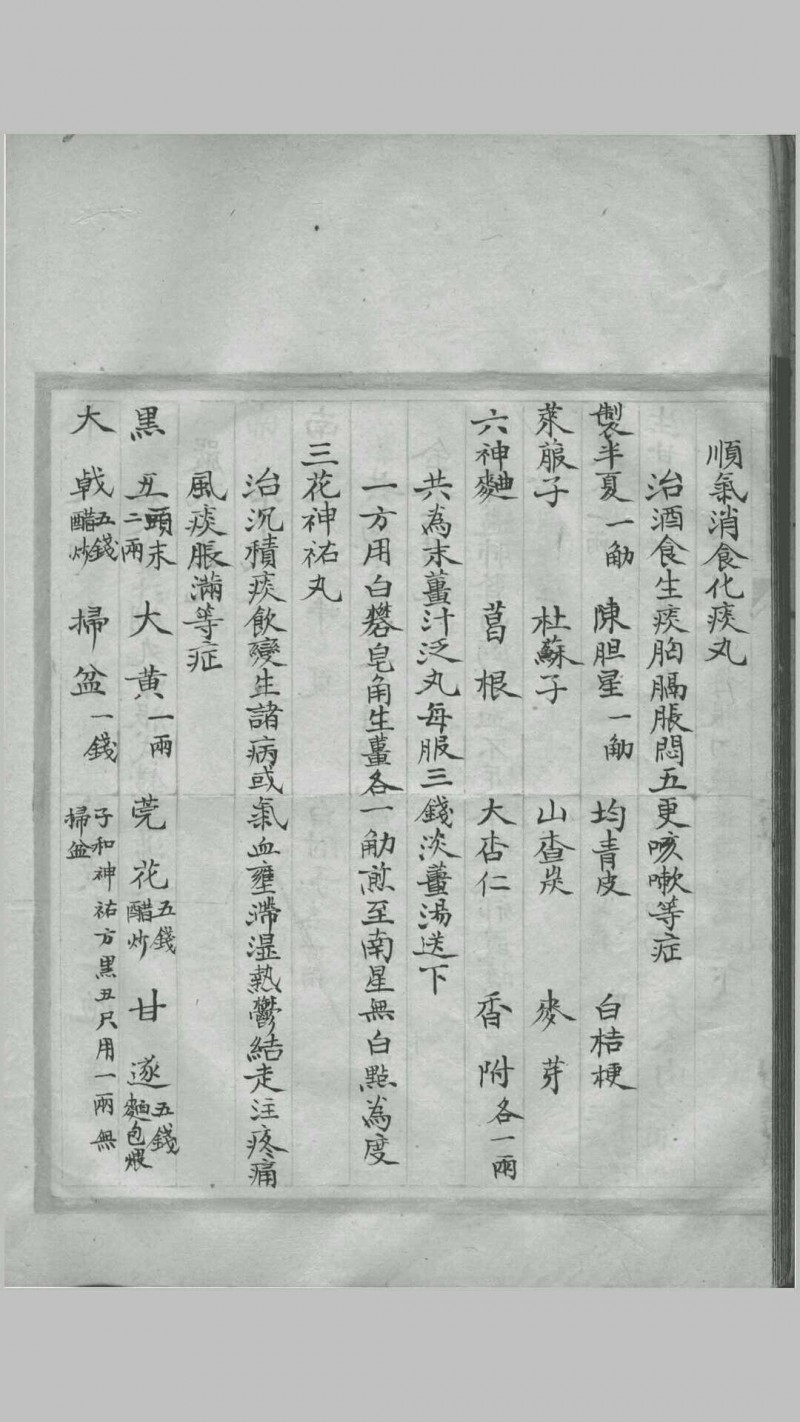 順氣消食化痰丸
治酒食生痰胸膈脹悶五更咳嗽等症
製半夏一觔 陳胆星一觔 均青皮 白桔梗
萊菔子 杜蘇子 山查炭 麥芽
六神麯 葛根 大杏仁 香附各一兩
共為末薑汁泛丸每服三錢淡薑湯送下
一方用白礬皂角生薑各一觔煎至南星無白點為度
三花神祐丸
治沉積痰飲變生諸病或氣血壅滯湿熱鬱結走注疼痛
風痰脹滿等症
黑丑頭末二兩 大黃一兩 莞花五錢醋炒 甘遂五錢麵包煨
大戟五錢醋炒 掃盆一錢 子和神祐方黑丑只用一兩無掃盆